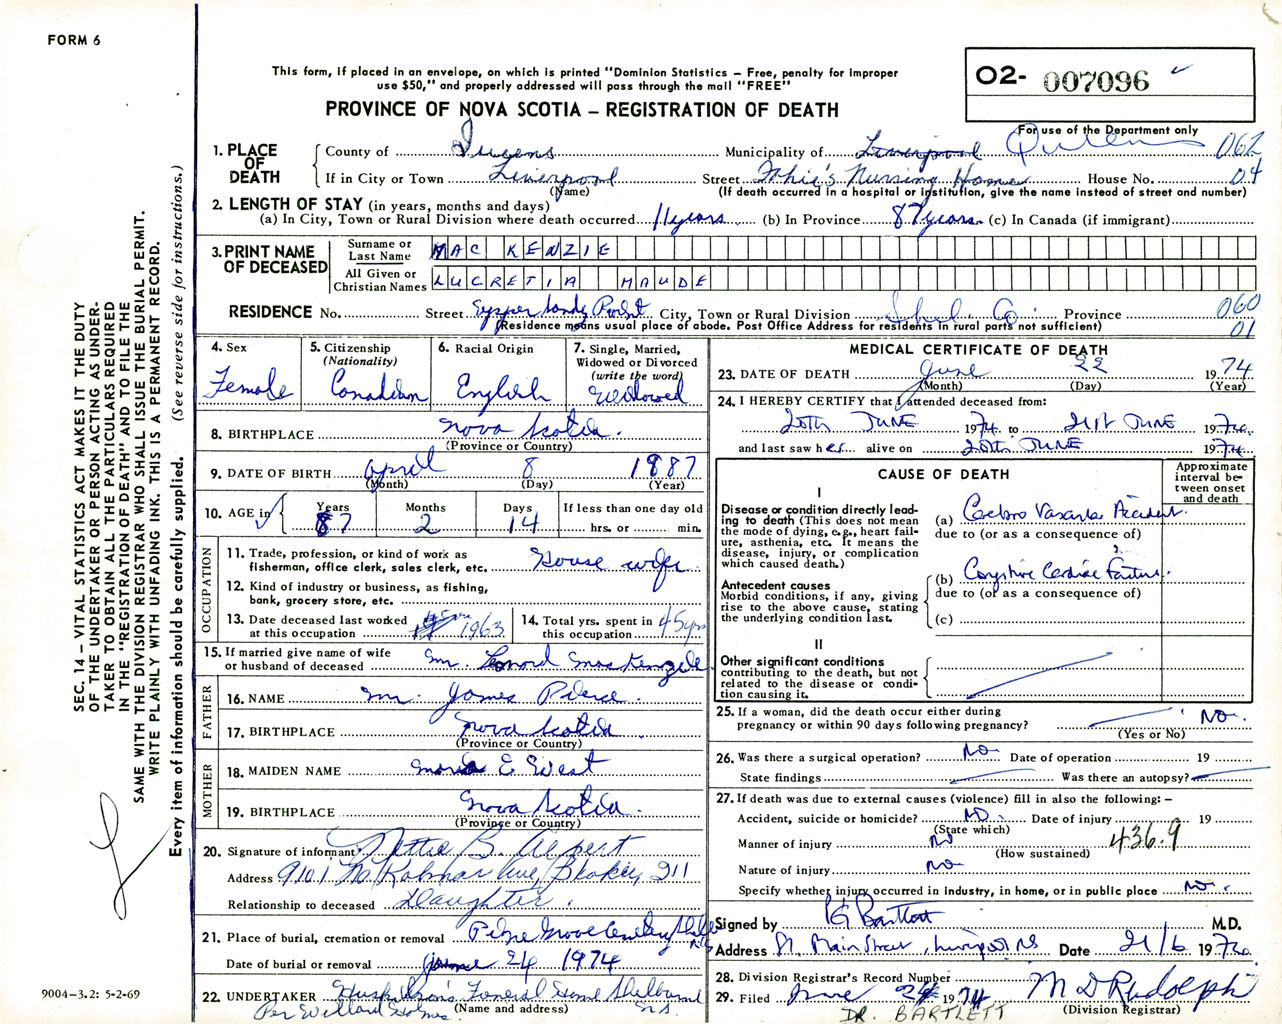 FORM 6
This form, if placed in an envelope, on which is printed "Dominion Statistics – Free, penalty for improper
use $50," and properly addressed will pass through the mail "FREE"
PROVINCE OF NOVA SCOTIA – REGISTRATION OF DEATH
O2- 007096
For use of the Department only
1. PLACE OF DEATH County of Queens Municipality of Liverpool Queens 062
If in City or Town Liverpool Street Nursing Home House No. 04
(Name) (If death occurred in a hospital or institution, give the name instead of street and number)
2. LENGTH OF STAY (in years, months and days)
(a) In City, Town or Rural Division where death occurred 11 years (b) In Province 87 years (c) In Canada (if immigrant)
3. PRINT NAME OF DECEASED Surname or Last Name MAC KENZIE
All Given or Christian Names LUCRETIA MAUDE
RESIDENCE No. Street Upper Sandy Point City, Town or Rural Division Shel. Co. Province 060
(Residence means usual place of abode. Post Office Address for residents in rural parts not sufficient) 01
4. Sex Female
5. Citizenship (Nationality) Canadian
6. Racial Origin English
7. Single, Married, Widowed or Divorced (write the word) Widowed
8. BIRTHPLACE Nova Scotia.
(Province or Country)
9. DATE OF BIRTH April 8 1887
(Month) (Day) (Year)
10. AGE in Years 87 Months 2 Days 14 If less than one day old
hrs. or min.
OCCUPATION
11. Trade, profession, or kind of work as
fisherman, office clerk, sales clerk, etc. House wife
12. Kind of industry or business, as fishing,
bank, grocery store, etc.
13. Date deceased last worked at this occupation 1963
14. Total yrs. spent in this occupation 45 yrs
15. If married give name of wife
or husband of deceased Mr. Leonard MacKenzie
FATHER
16. NAME Mr. James Pierce
17. BIRTHPLACE Nova Scotia
(Province or Country)
MOTHER
18. MAIDEN NAME Maria E West
19. BIRTHPLACE Nova Scotia.
(Province or Country)
20. Signature of informant Nettie B.
Address 9101 Ave,
Relationship to deceased Daughter.
21. Place of burial, cremation or removal Pine Grove Cemetery
Date of burial or removal June 24 1974
22. UNDERTAKER Funeral Home Shelburne N.S.
Per Willard Holmes (Name and address)
MEDICAL CERTIFICATE OF DEATH
23. DATE OF DEATH June 22 1974
(Month) (Day) (Year)
24. I HEREBY CERTIFY that I attended deceased from:
20th JUNE 1974 to 21st JUNE 1974
and last saw her alive on 20th JUNE 1974
CAUSE OF DEATH
Approximate interval between onset and death
I
Disease or condition directly lead-
ing to death (This does not mean
the mode of dying, e.g., heart fail-
ure, asthenia, etc. It means the
disease, injury, or complication
which caused death.)
(a) Cerebro Vascular Accident.
due to (or as a consequence of)
Antecedent causes
Morbid conditions, if any, giving
rise to the above cause, stating
the underlying condition last.
(b) Congestive Cardiac Failure.
due to (or as a consequence of)
(c)
II
Other significant conditions
contributing to the death, but not
related to the disease or condi-
tion causing it.
25. If a woman, did the death occur either during
pregnancy or within 90 days following pregnancy? No.
(Yes or No)
26. Was there a surgical operation? No. Date of operation 19
State findings Was there an autopsy?
27. If death was due to external causes (violence) fill in also the following: –
Accident, suicide or homicide? No. Date of injury 19
(State which)
Manner of injury No 436.9
(How sustained)
Nature of injury No
Specify whether injury occurred in industry, in home, or in public place No.
Signed by Bartlett M.D.
Address Main Street, Liverpool NS Date 21/6 1974
28. Division Registrar's Record Number
29. Filed June 24 1974 M D Rudolph
DR. BARTLETT (Division Registrar)
SEC. 14 – VITAL STATISTICS ACT MAKES IT THE DUTY
OF THE UNDERTAKER OR PERSON ACTING AS UNDER-
TAKER TO OBTAIN ALL THE PARTICULARS REQUIRED
IN THE "REGISTRATION OF DEATH" AND TO FILE THE
SAME WITH THE DIVISION REGISTRAR WHO SHALL ISSUE THE BURIAL PERMIT.
WRITE PLAINLY WITH UNFADING INK. THIS IS A PERMANENT RECORD.
Every item of information should be carefully supplied. (See reverse side for instructions.)
9004–3.2: 5-2-69